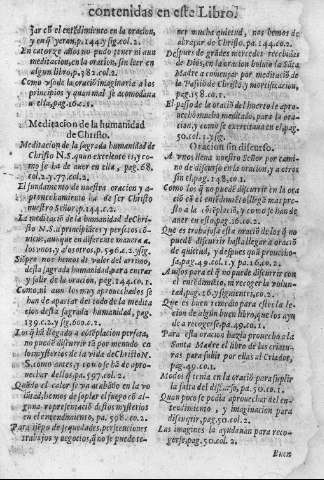 contenidas en este Libro.
jar cõ el entẽdimiento en la oracion,
y en q̃ yerran. p. 144. y sig. col. 2.
En catorze años no pudo tener ni aun
meditacion, en la oracion, sin leer en
algun libro, p. 382. col. 2.
Como usò de la oraciõ imaginaria a los
principios y quan mal se acomodava
en ella, pag. 16. c. 1.
Meditacion de la humanidad
de Christo.
Meditacion de la sagrada humanidad de
Christo N. S. quan excelente es, y co-
mo se ha de aver en ella, pag. 68.
col. 2. y. 77. col. 2.
El fundamento de nuestra oracion y a-
provechamiento ha de ser Christo
nuestro Señor, p. 144. c. 2.
La meditaciõ de la humanidad de Chri-
sto N. S. a principiãtes y perfectos cõ-
viene, aunque en diferente manera a
los unos, y a otros. p. 596. c. 2. y sig.
Siẽpre nos hemos de valer del arrimo,
desta sagrada humanidad para entrar
y salir de la oracion, pag. 144. co. 1.
Como, ni aun los muy aprovechados se
han de apartar del todo de la medita
cion desta sagrada humanidad, pag.
139. c. 2. y sig. 600. c. 2.
Los q̃ hã llegado a cõtẽplacion perfeta,
no puedẽ discurrir tã por menudo en
los mysterios de la vida de Christo N.
S. como antes, y como se hã de apro-
vechar dellos, pa. 597. col. 2.
Quãdo el calor se va acabãdo en la vo
lũtad, hemos de soplar el fuego cõ al-
guna representaciõ destos mysterios
en el entendimiento, pa. 598. co. 2.
Para tiẽpo de sequedades, persecuciones
trabajos y negocios, q̃ no se puede te-
ner mucha quietud, nos hemos de
abraçar de Christo, pa. 144. co. 2.
Despues de grãdes mercedes recebidas
de Dios, en la oracion bolvia la Sãta
Madre a començar por meditaciõ de
la Passiõ de Christo, y mortificacion,
pag. 158. co. 1.
El passo de la oraciõ del huerto le apro-
vechó mucho meditado, para la ora-
cion, y como se exercitava en el. pag.
50. col. 1. y sig.
Oracion sin discurso.
A unos lleva nuestro Señor por cami-
no de discurso en la oracion, y a otros
sin el, pag. 148. co. 1.
Como los q̃ no puedẽ discurrir en la ora
ciõ cõ el entẽdimiẽto llegã mas pre-
sto a la cõtẽplaciõ, y como se han de
aver en esto, pag. 16. co. 2.
Que es trabajosa esta oraciõ de los q̃ no
puedẽ discurrir hasta llegar a oraciõ
de quietud, y despues quã provecho-
sa, pag. 49. col. 1. y pa. 16. co. 2.
Avisos para el q̃ no puede discurrir con
el entendimiento, ni recoger la volun-
tad, pag. 16. y siguientes, co. 2.
Que es buen remedio para esto la le-
cion de algun buen libro, que los ayu
da a recogerse. pa. 49. co. 1.
Para esta oracion hazia provecho a la
Santa Madre el libro de las criatu-
ras para subir por ellas al Criador,
pag. 49. co. 1.
Modos q̃ tenia en la oraciõ para suplir
la falta del discurso, pa. 50. co. 1.
Quan poco se podia aprovechar del en-
tendimiento, y imaginacion para
discurrir, pag. 50. col. 2.
Las imagines la ayudavan para reco-
gerse, pag. 50. col. 2.